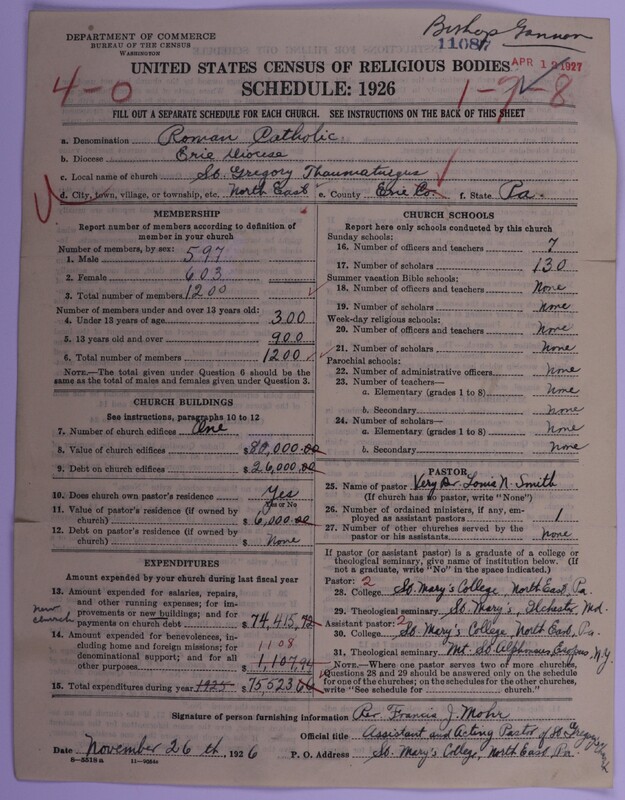 Bishop Gannon
DEPARTMENT OF COMMERCE
BUREAU OF THE CENSUS
WASHINGTON
11087
APR 12 1927
UNITED STATES CENSUS OF RELIGIOUS BODIES
4-0
SCHEDULE: 1926
1-7-8
FILL OUT A SEPARATE SCHEDULE FOR EACH CHURCH. SEE INSTRUCTIONS ON THE BACK OF THIS SHEET
a. Denomination Roman Catholic.
b. Diocese Erie Diocese
c. Local name of church St. Gregory Thaumaturgus
d. City, town, village, or township, etc. North East e. County Erie Co. f. State Pa.
MEMBERSHIP
Report number of members according to definition of
member in your church
Number of members, by sex:
1. Male 597
2. Female 603
3. Total number of members 1200
Number of members under and over 13 years old:
4. Under 13 years of age 300
5. 13 years old and over 900
6. Total number of members 1200
NOTE.—The total given under Question 6 should be
the same as the total of males and females given under Question 3.
CHURCH BUILDINGS
See instructions, paragraphs 10 to 12
7. Number of church edifices One
8. Value of church edifices $80,000.00
9. Debt on church edifices $26,000.00
10. Does church own pastor's residence Yes
Yes or No
11. Value of pastor's residence (if owned by
church) $6,000.00
12. Debt on pastor's residence (if owned by
church) $ None
EXPENDITURES
Amount expended by your church during last fiscal year
13. Amount expended for salaries, repairs,
and other running expenses; for im-
provements or new buildings; and for
payments on church debt $74,415.72
new church
14. Amount expended for benevolences, in-
cluding home and foreign missions; for
denominational support; and for all
other purposes $1,107.94
1108
15. Total expenditures during year 1925 $75,523.66
CHURCH SCHOOLS
Report here only schools conducted by this church
Sunday schools:
16. Number of officers and teachers 7
17. Number of scholars 130
Summer vacation Bible schools:
18. Number of officers and teachers None
19. Number of scholars None
Week-day religious schools:
20. Number of officers and teachers None
21. Number of scholars None
Parochial schools:
22. Number of administrative officers None
23. Number of teachers—
a. Elementary (grades 1 to 8) None
b. Secondary None
24. Number of scholars—
a. Elementary (grades 1 to 8) None
b. Secondary None
PASTOR
25. Name of pastor Very Rev. Louis N. Smith
(If church has no pastor, write "None")
26. Number of ordained ministers, if any, em-
ployed as assistant pastors 1
27. Number of other churches served by the
pastor or his assistants None
If pastor (or assistant pastor) is a graduate of a college or
theological seminary, give name of institution below. (If
not a graduate, write "No" in the space indicated.)
Pastor: 2
28. College St. Mary's College, North East, Pa.
29. Theological seminary St. Mary's, Ilchester, Md.
Assistant pastor: 2
30. College St. Mary's College, North East, Pa.
31. Theological seminary Mt. St. Alphonsus, Esopus, N.Y.
NOTE.—Where one pastor serves two or more churches,
Questions 28 and 29 should be answered only on the schedule
for one of the churches; on the schedules for the other churches,
write "See schedule for church."
Signature of person furnishing information Rev. Francis J. Mohr
Official title Assistant and Acting Pastor of St. Gregory
Date November 26th, 1926 P. O. Address St. Mary's College, North East, Pa.
8-5518 a